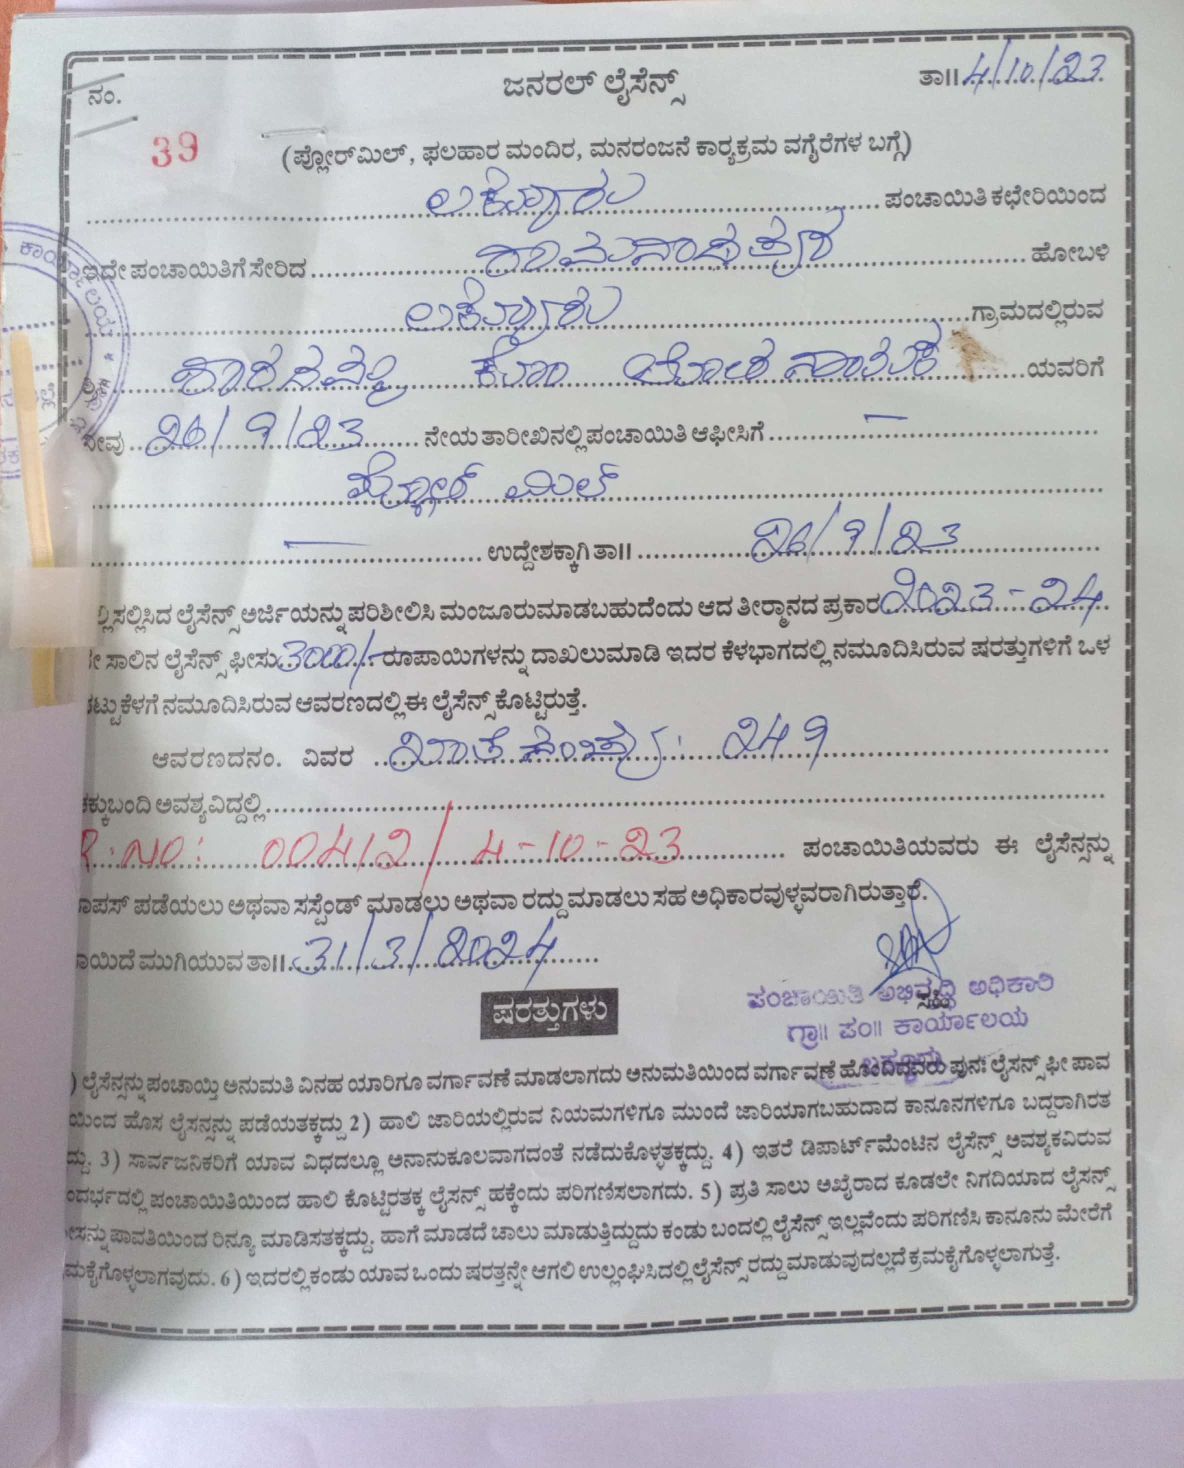 ನಂ.
ಜನರಲ್ ಲೈಸೆನ್ಸ್
ತಾ|| 4/10/23
39
(ಪ್ಲೋರ್‌ಮಿಲ್, ಫಲಹಾರ ಮಂದಿರ, ಮನರಂಜನೆ ಕಾರ್‍ಯಕ್ರಮ ವಗೈರೆಗಳ ಬಗ್ಗೆ)
ಪಂಚಾಯಿತಿ ಕಛೇರಿಯಿಂದ
ಇದೇ ಪಂಚಾಯಿತಿಗೆ ಸೇರಿದ ರಾಮನಾಥಪುರ ಹೋಬಳಿ
ಗ್ರಾಮದಲ್ಲಿರುವ
ಶಾರದಮ್ಮ ಕೋಂ ಯವರಿಗೆ
26/9/23 ನೇಯ ತಾರೀಖಿನಲ್ಲಿ ಪಂಚಾಯಿತಿ ಆಫೀಸಿಗೆ —
ಪ್ಲೋರ್ ಮಿಲ್
— ಉದ್ದೇಶಕ್ಕಾಗಿ ತಾ|| 26/9/23
ಲ್ಲಿಸಲ್ಲಿಸಿದ ಲೈಸೆನ್ಸ್ ಅರ್ಜಿಯನ್ನು ಪರಿಶೀಲಿಸಿ ಮಂಜೂರುಮಾಡಬಹುದೆಂದು ಆದ ತೀರ್‍ಮಾನದ ಪ್ರಕಾರ 2023-24
ಸಾಲಿನ ಲೈಸೆನ್ಸ್ ಫೀಸು 3000/- ರೂಪಾಯಿಗಳನ್ನು ದಾಖಲುಮಾಡಿ ಇದರ ಕೆಳಭಾಗದಲ್ಲಿ ನಮೂದಿಸಿರುವ ಷರತ್ತುಗಳಿಗೆ ಒಳ
ಪಟ್ಟು ಕೆಳಗೆ ನಮೂದಿಸಿರುವ ಆವರಣದಲ್ಲಿ ಈ ಲೈಸೆನ್ಸ್ ಕೊಟ್ಟಿರುತ್ತೆ.
ಆವರಣದ ನಂ. ವಿವರ ಖಾತೆ ಸಂಖ್ಯೆ: 249
ಚಕ್ಕುಬಂದಿ ಅವಶ್ಯವಿದ್ದಲ್ಲಿ
R.NO: 00412/ 4-10-23 ಪಂಚಾಯಿತಿಯವರು ಈ ಲೈಸೆನ್ಸನ್ನು
ವಾಪಸ್ ಪಡೆಯಲು ಅಥವಾ ಸಸ್ಪೆಂಡ್ ಮಾಡಲು ಅಥವಾ ರದ್ದು ಮಾಡಲು ಸಹ ಅಧಿಕಾರವುಳ್ಳವರಾಗಿರುತ್ತಾರೆ.
ವಾಯಿದೆ ಮುಗಿಯುವ ತಾ|| 31/3/2024
ಪಂಚಾಯಿತಿ ಅಭಿವೃದ್ಧಿ ಅಧಿಕಾರಿ
ಗ್ರಾ|| ಪಂ|| ಕಾರ್ಯಾಲಯ
ಷರತ್ತುಗಳು
) ಲೈಸೆನ್ಸನ್ನು ಪಂಚಾಯ್ತಿ ಅನುಮತಿ ವಿನಹ ಯಾರಿಗೂ ವರ್ಗಾವಣೆ ಮಾಡಲಾಗದು ಅನುಮತಿಯಿಂದ ವರ್ಗಾವಣೆ ಹೊಂದಿದವರು ಪುನಃ ಲೈಸನ್ಸ್ ಫೀ ಪಾವ
ಯಿಂದ ಹೊಸ ಲೈಸನ್ಸನ್ನು ಪಡೆಯತಕ್ಕದ್ದು 2) ಹಾಲಿ ಜಾರಿಯಲ್ಲಿರುವ ನಿಯಮಗಳಿಗೂ ಮುಂದೆ ಜಾರಿಯಾಗಬಹುದಾದ ಕಾನೂನಗಳಿಗೂ ಬದ್ದರಾಗಿರತ
ದ್ದು. 3) ಸಾರ್ವಜನಿಕರಿಗೆ ಯಾವ ವಿಧದಲ್ಲೂ ಅನಾನುಕೂಲವಾಗದಂತೆ ನಡೆದುಕೊಳ್ಳತಕ್ಕದ್ದು. 4) ಇತರೆ ಡಿಪಾರ್ಟ್‌ಮೆಂಟಿನ ಲೈಸೆನ್ಸ್ ಅವಶ್ಯಕವಿರುವ
ಂದರ್ಭದಲ್ಲಿ ಪಂಚಾಯಿತಿಯಿಂದ ಹಾಲಿ ಕೊಟ್ಟಿರತಕ್ಕ ಲೈಸನ್ಸ್ ಹಕ್ಕೆಂದು ಪರಿಗಣಿಸಲಾಗದು. 5) ಪ್ರತಿ ಸಾಲು ಅಖೈರಾದ ಕೂಡಲೇ ನಿಗದಿಯಾದ ಲೈಸನ್ಸ್
ೀಸನ್ನು ಪಾವತಿಯಿಂದ ರಿನ್ಯೂ ಮಾಡಿಸತಕ್ಕದ್ದು. ಹಾಗೆ ಮಾಡದೆ ಚಾಲು ಮಾಡುತ್ತಿದ್ದುದು ಕಂಡು ಬಂದಲ್ಲಿ ಲೈಸೆನ್ಸ್ ಇಲ್ಲವೆಂದು ಪರಿಗಣಿಸಿ ಕಾನೂನು ಮೇರೆಗೆ
ಮಕೈಗೊಳ್ಳಲಾಗವುದು. 6) ಇದರಲ್ಲಿ ಕಂಡು ಯಾವ ಒಂದು ಷರತ್ತನ್ನೇ ಆಗಲಿ ಉಲ್ಲಂಘಿಸಿದಲ್ಲಿ ಲೈಸೆನ್ಸ್ ರದ್ದು ಮಾಡುವುದಲ್ಲದೆ ಕ್ರಮಕೈಗೊಳ್ಳಲಾಗುತ್ತೆ.